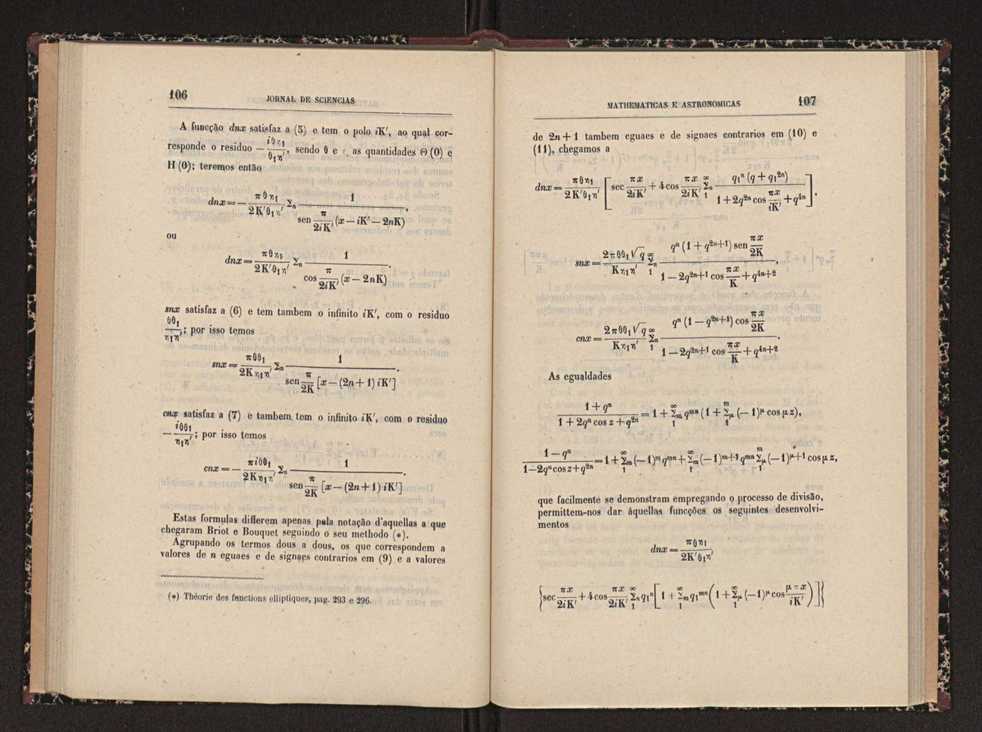 106 JORNAL DE SCIENCIAS
A funcção dnx satisfaz a (5) e tem o polo iK′, ao qual cor-
responde o residuo − iθη₁ / θ₁η′, sendo θ e as quantidades Θ (0) e
H (0); teremos então
dnx = − πθη₁ / 2K′θ₁η′ Σₙ 1 / sen π/2iK′ (x − iK′ − 2nK)
ou
dnx = πθη₁ / 2K′θ₁η′ Σₙ 1 / cos π/2iK′ (x − 2nK) .
snx satisfaz a (6) e tem tambem o infinito iK′, com o residuo
θθ₁ / η₁η′; por isso temos
snx = πθθ₁ / 2Kη₁η′ Σₙ 1 / sen π/2K [x − (2n + 1) iK′] .
cnx satisfaz a (7) e tambem tem o infinito iK′, com o residuo
− iθθ₁ / η₁η′; por isso temos
cnx = − πiθθ₁ / 2Kη₁η′ Σₙ 1 / sen π/2K [x − (2n + 1) iK′] .
Estas formulas differem apenas pela notação d'aquellas a que
chegaram Briot e Bouquet seguindo o seu methodo (*).
Agrupando os termos dous a dous, os que correspondem a
valores de n eguaes e de signaes contrarios em (9) e a valores
(*) Théorie des functions elliptiques, pag. 293 e 296.
MATHEMATICAS E ASTRONOMICAS 107
de 2n + 1 tambem eguaes e de signaes contrarios em (10) e
(11), chegamos a
dnx = πθη₁ / 2K′θ₁η′ [ sec πx/2iK′ + 4 cos πx/2iK′ Σₙ₁^∞ q₁ⁿ (q + q₁²ⁿ) / 1 + 2q²ⁿ cos πx/iK′ + q⁴ⁿ ] ,
snx = 2πθθ₁√q / Kη₁η′ Σₙ₁^∞ qⁿ (1 + q²ⁿ⁺¹) sen πx/2K / 1 − 2q²ⁿ⁺¹ cos πx/K + q⁴ⁿ⁺²
cnx = 2πθθ₁√q / Kη₁η′ Σₙ₁^∞ qⁿ (1 − q²ⁿ⁺¹) cos πx/2K / 1 − 2q²ⁿ⁺¹ cos πx/K + q⁴ⁿ⁺² .
As egualdades
1 + qⁿ / 1 + 2qⁿ cos z + q²ⁿ = 1 + Σₘ₁^∞ qᵐⁿ (1 + Σμ₁^m (−1)^μ cos μz),
1 − qⁿ / 1−2qⁿcosz+q²ⁿ = 1 + Σₘ₁^∞ (−1)ᵐqᵐⁿ + Σₘ₁^∞ (−1)ᵐ⁺¹ qᵐⁿ Σμ₁^m (−1)^μ⁺¹ cosμz,
que facilmente se demonstram empregando o processo de divisão,
permittem-nos dar áquellas funcções os seguintes desenvolvi-
mentos
dnx = πθη₁ / 2K′θ₁η′
{ sec πx/2iK′ + 4 cos πx/2iK′ Σₙ₁^∞ q₁ⁿ [ 1 + Σₘ₁^∞ q₁ᵐⁿ ( 1 + Σμ₁^∞ (−1)^μ cos μπx/iK′ ) ] }